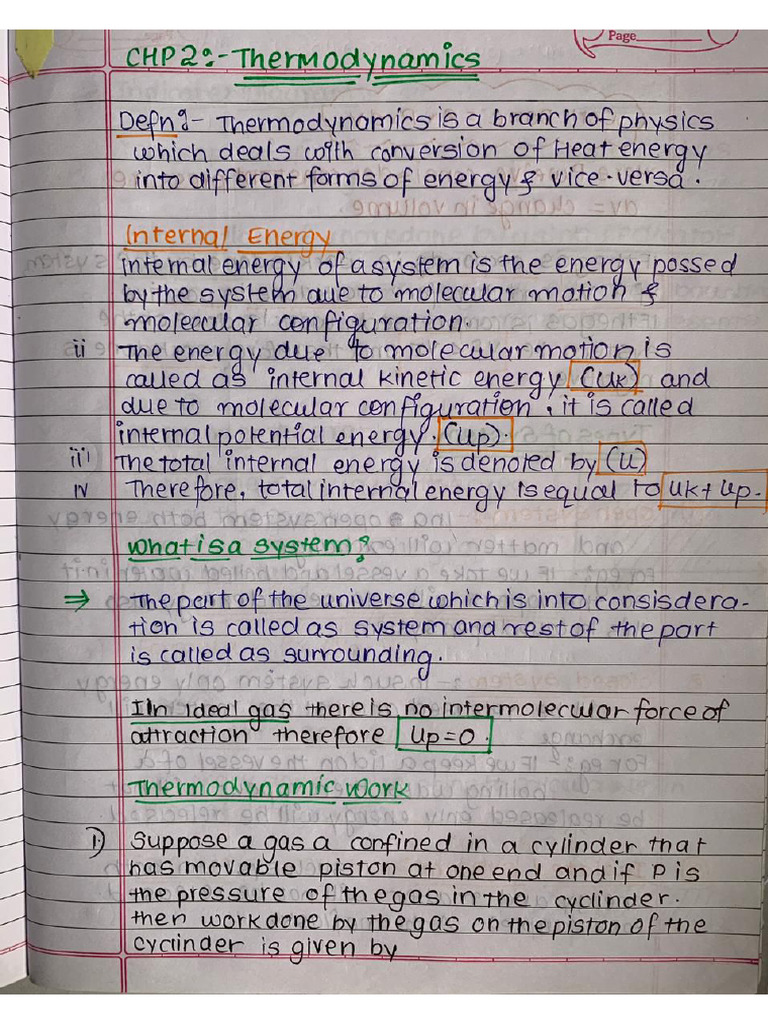 Page
CHP 2:- Thermodynamics
Defn:- Thermodynamics is a branch of physics
which deals with conversion of Heat energy
into different forms of energy & vice-versa.
Internal Energy
internal energy of a system is the energy possed
by the system due to molecular motion &
molecular configuration.
ii The energy due to molecular motion is
called as internal kinetic energy (UK) and
due to molecular configuration, it is called
internal potential energy. (Up).
iii The total internal energy is denoted by (U)
iv Therefore, total internal energy is equal to UK + Up.
What is a system?
⇒ The part of the universe which is into consisdera-
tion is called as system and rest of the part
is called as surrounding.
IIn ideal gas there is no intermolecular force of
attraction therefore Up=0.
Thermodynamic Work
1) Suppose a gas a confined in a cylinder that
has movable piston at one end and if P is
the pressure of the gas in the cyclinder.
then work done by the gas on the piston of the
cyclinder is given by